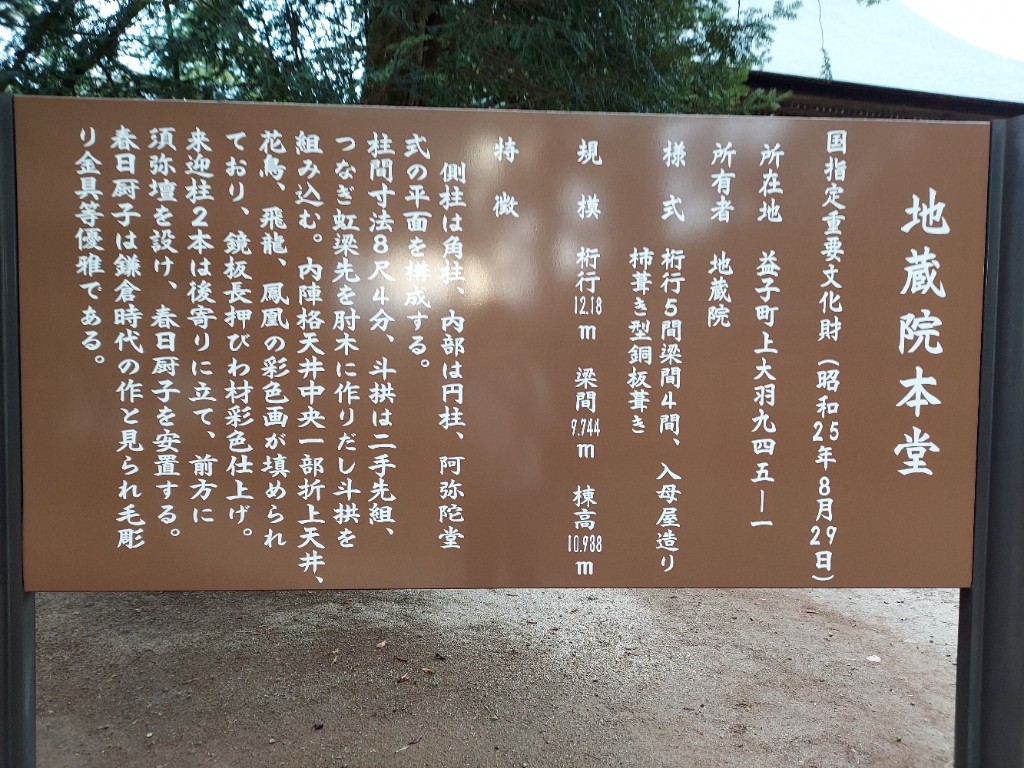 地蔵院本堂
国指定重要文化財(昭和25年8月29日)
所在地 益子町上大羽九四五―一
所有者 地蔵院
様式 桁行5間梁間4間、入母屋造り
柿葺き型銅板葺き
規模 桁行12.18m 梁間9.744m 棟高10.938m
特徴
側柱は角柱、内部は円柱、阿弥陀堂
式の平面を構成する。
柱間寸法8尺4分、斗拱は二手先組、
つなぎ虹梁先を肘木に作りだし斗拱を
組み込む。内陣格天井中央一部折上天井、
花鳥、飛龍、鳳凰の彩色画が填められ
ており、鏡板長押びわ材彩色仕上げ。
来迎柱2本は後寄りに立て、前方に
須弥壇を設け、春日厨子を安置する。
春日厨子は鎌倉時代の作と見られ毛彫
り金具等優雅である。